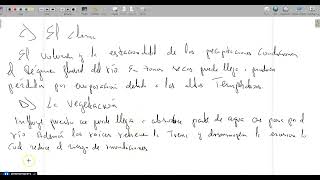 C) El clima
El volumen y la estacionalidad de las precipitaciones condicionan
el régimen fluvial del río. En zonas secas puede llegar a producir
pérdidas por evaporación debido a las altas Temperaturas
D) La vegetación
Influye puesto que puede llegar a absorber parte de agua que pasa por el
río. Además las raíces retienen la Tierra y disminuyen la erosión lo
cual reduce el riesgo de inundaciones